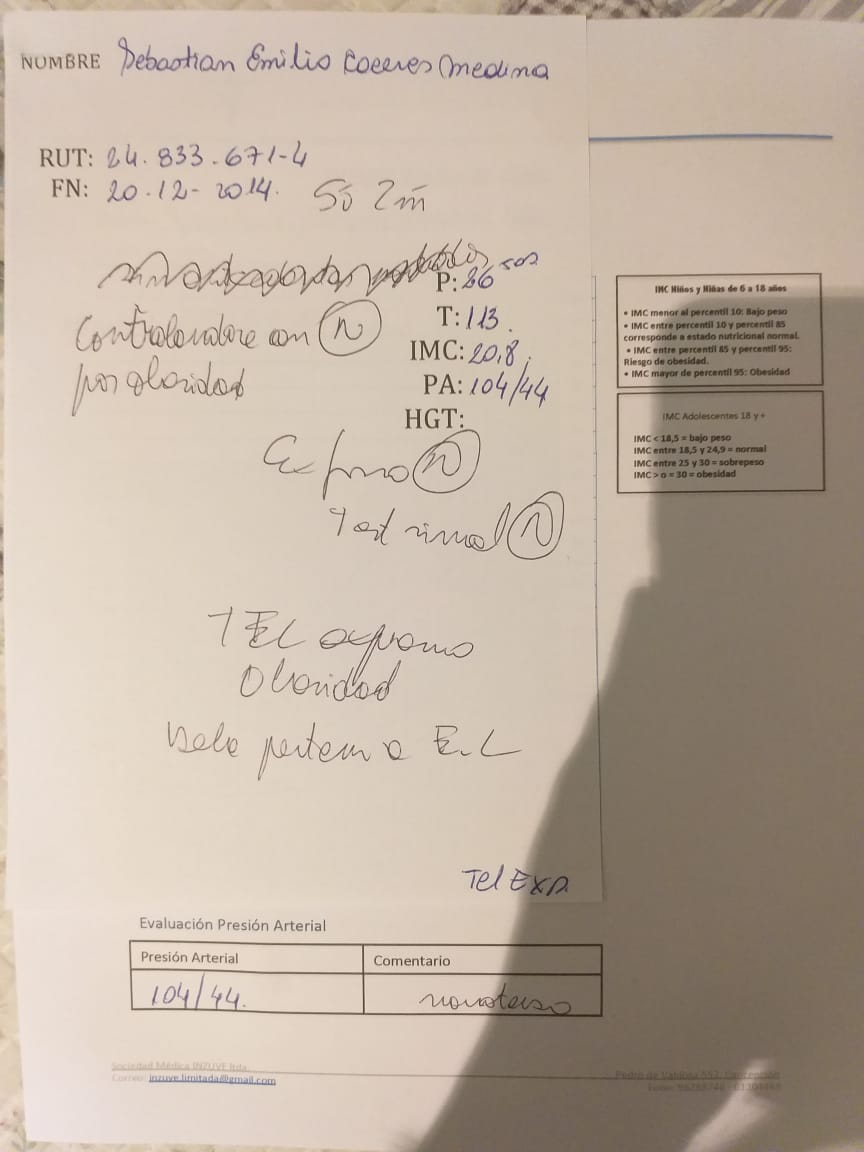 NOMBRE Sebastian Emilio Caceres Medina
RUT: 24.833.671-4
FN: 20-12-2014.
P: 26 500
T: 113.
Controlandose con (N)
IMC: 20,8.
por obesidad
PA: 104/44
HGT:
Ex fisico (N)
Test visual (N)
TEL expresivo
Obesidad
Debe pertenecer a E.L
Tel EXP.
IMC Niños y Niñas de 6 a 18 años
• IMC menor al percentil 10: Bajo peso
• IMC entre percentil 10 y percentil 85
corresponde a estado nutricional normal.
• IMC entre percentil 85 y percentil 95:
Riesgo de obesidad.
• IMC mayor de percentil 95: Obesidad
IMC Adolescentes 18 y +
IMC < 18,5 = bajo peso
IMC entre 18,5 y 24,9 = normal
IMC entre 25 y 30 = sobrepeso
IMC > o = 30 = obesidad
Evaluación Presión Arterial
Presión Arterial Comentario
104/44. normotenso
Sociedad Médica INZUVE ltda.
Correo: inzuve.limitada@gmail.com
Pedro de Valdivia 557, Concepción